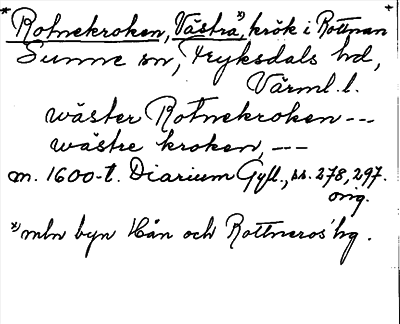 * Rotnekroken, Västra*), krök i Rottnan +
Sunne sn, Fryksdals hd,
Värml. l.
wäster Rotnekroken ---
wästre kroken, ---
m. 1600-t. Diarium Gyll., ss. 278, 297.
orig.
*) mln byn Hån och Rottneros' hg.